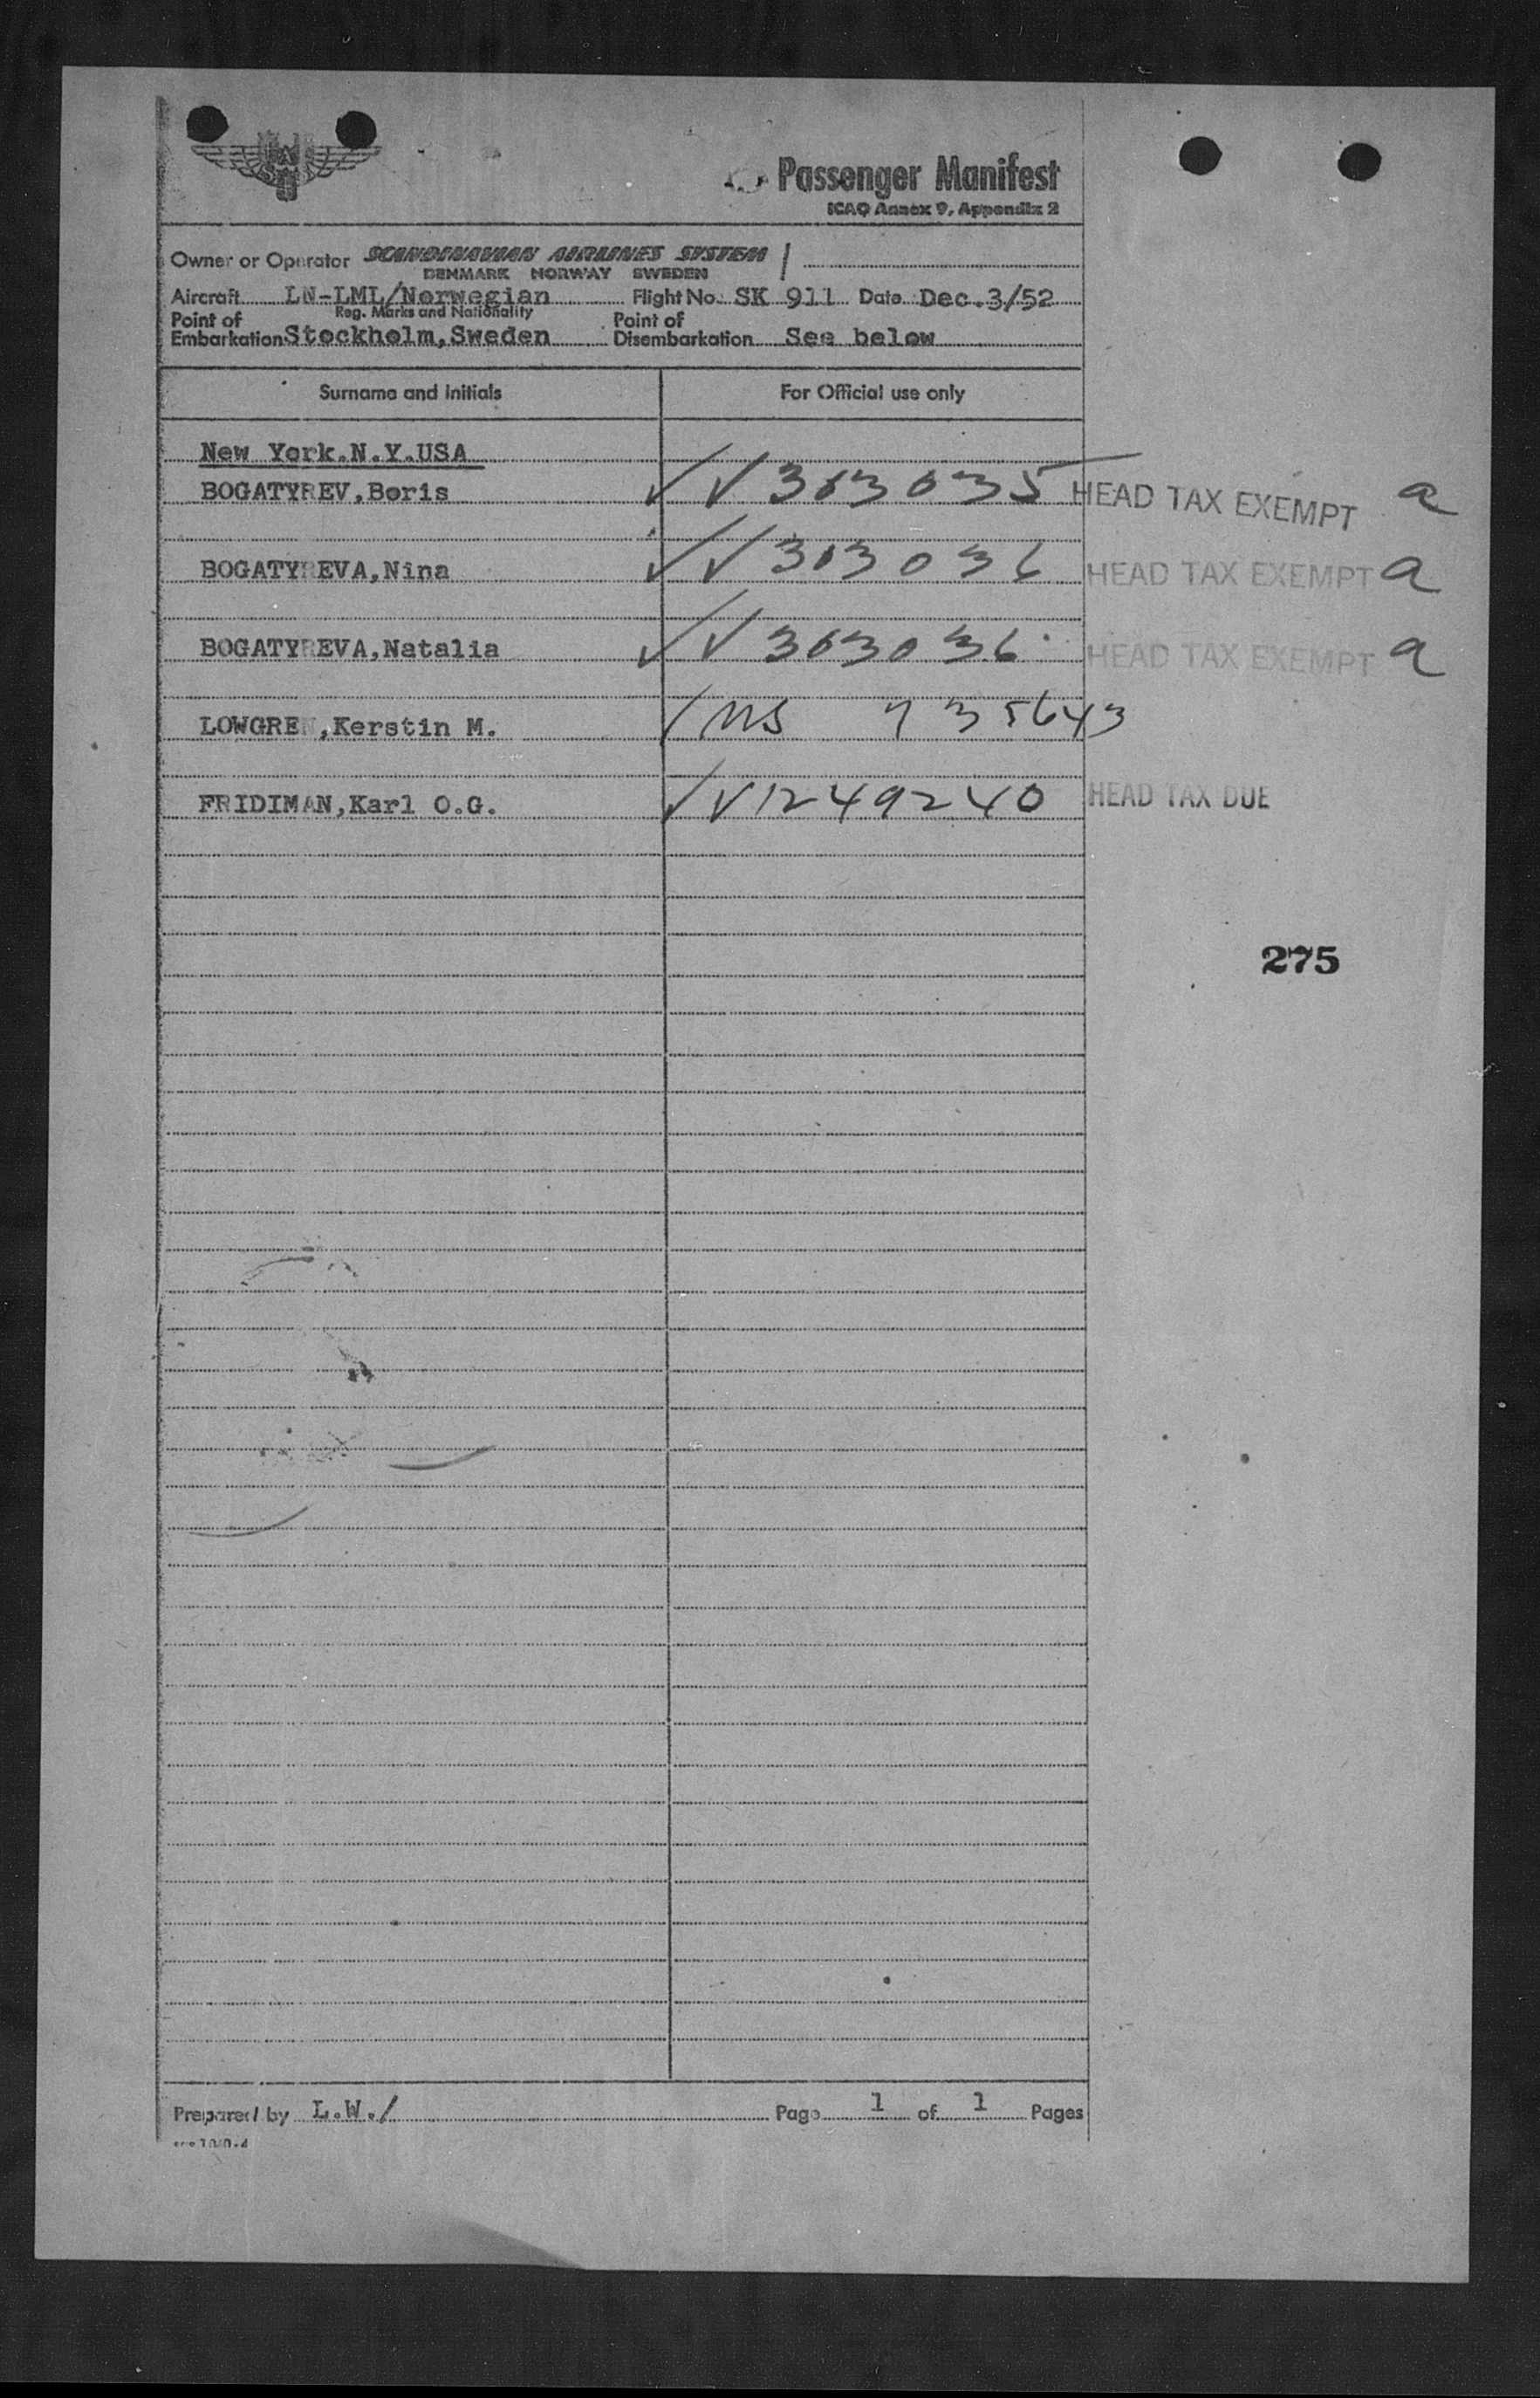 Passenger Manifest
ICAO Annex 9, Appendix 2
Owner or Operator SCANDINAVIAN AIRLINES SYSTEM
DENMARK NORWAY SWEDEN
Aircraft LN-LML/Norwegian Flight No. SK 911 Date Dec.3/52
Reg. Marks and Nationality
Point of Embarkation Stockholm,Sweden Point of Disembarkation See below
Surname and Initials For Official use only
New York.N.Y.USA
BOGATYREV,Boris V 303035 HEAD TAX EXEMPT a
BOGATYREVA,Nina V 303036 HEAD TAX EXEMPT a
BOGATYREVA,Natalia V 303036 HEAD TAX EXEMPT a
LOWGREN,Kerstin M. 735643
FRIDIMAN,Karl O.G. V 1249240 HEAD TAX DUE
275
Prepared by L.W./ Page 1 of 1 Pages